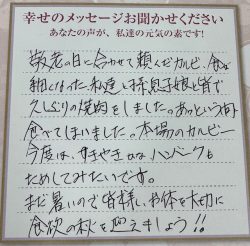 幸せのメッセージお聞かせください
あなたの声が、私達の元気の素です!
敬老の日に合わせて頼んだカルビ、食が
細くなった私達と孫息子娘と皆で
久しぶりの焼肉をしました。あっという間に
食べてしまいました。本場のカルビー
今度は、すきやき ハンバーグも
ためしてみたいです。
まだ暑いので皆様、お体を大切に
食欲の秋を迎えましょう!!